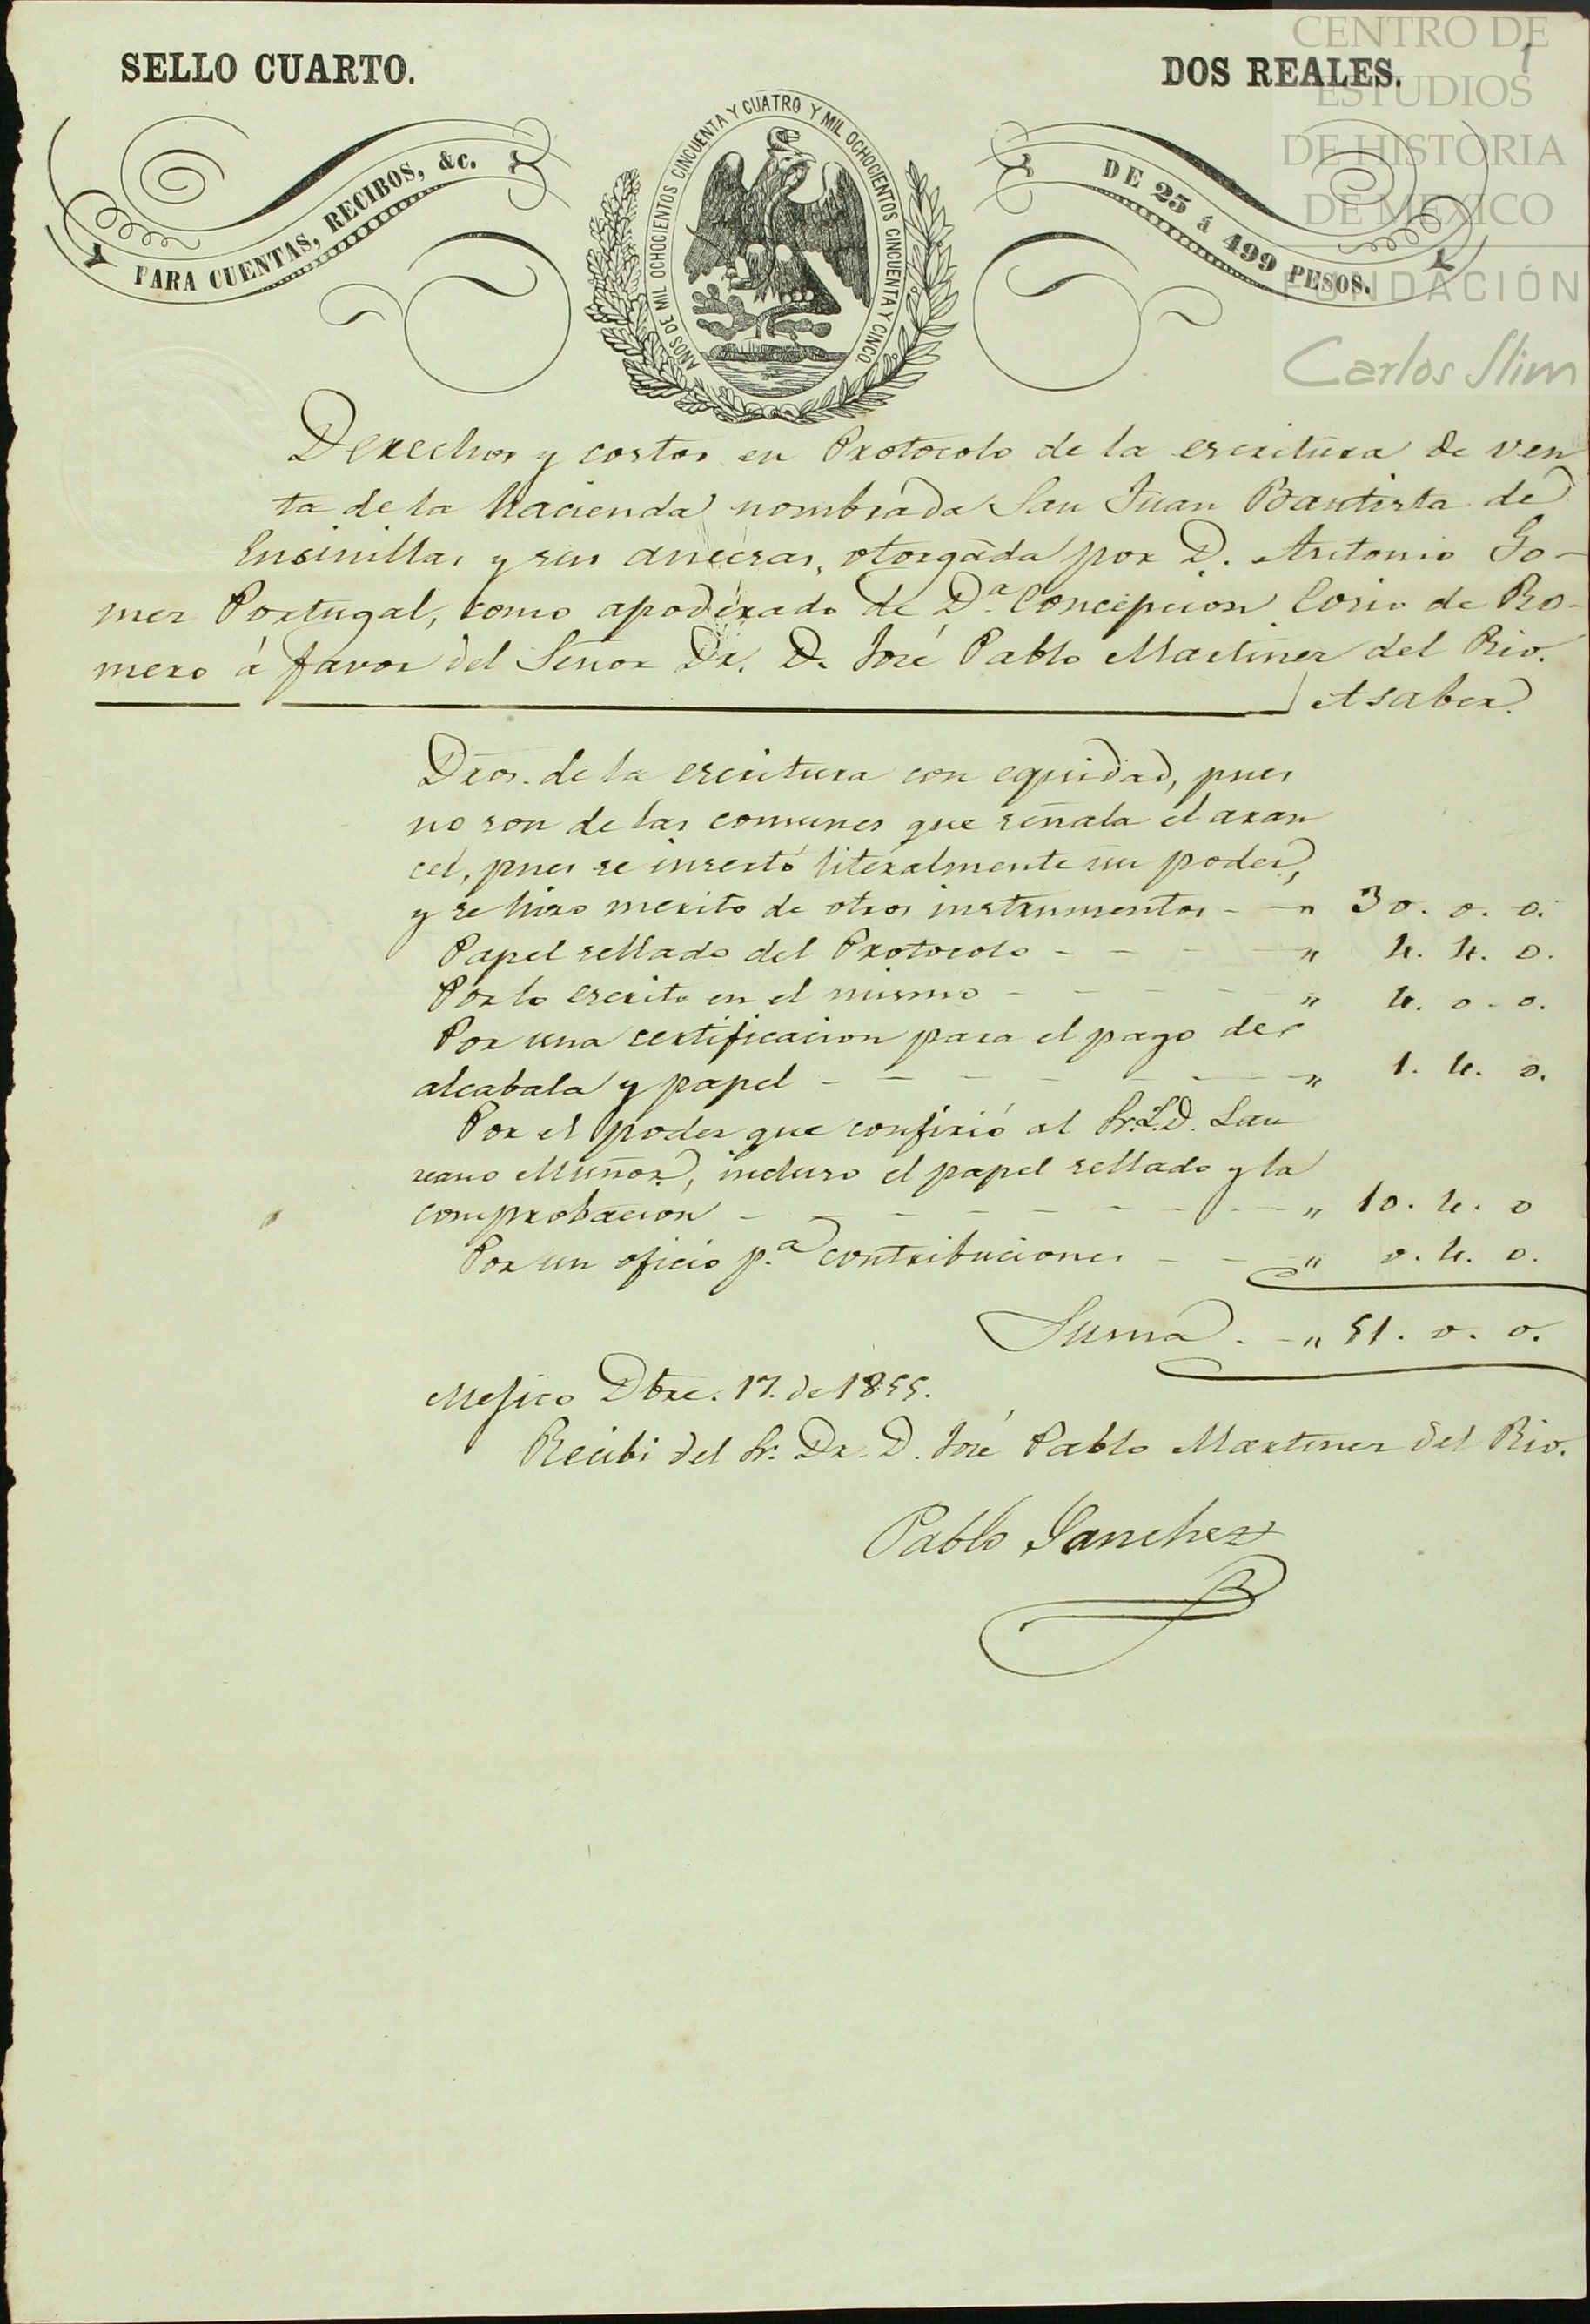 SELLO CUARTO.
DOS REALES.
1
CENTRO DE
ESTUDIOS
DE HISTORIA
DE MEXICO
FUNDACIÓN
Carlos Slim
PARA CUENTAS, RECIBOS, &c.
AÑOS DE MIL OCHOCIENTOS CINCUENTA Y CUATRO Y MIL OCHOCIENTOS CINCUENTA Y CINCO
DE 25 á 499 PESOS.
Derechos y costos en Protocolo de la escritura de ven
ta de la hacienda nombrada San Juan Bautista de
Ensinillas y sus anecsas, otorgada por D. Antonio Go-
mez Portugal, como apoderado de D.ª Concepcion Cosio de Ro-
mero á favor del Señor Dr. D. José Pablo Martinez del Rio.
A saber.
Dros. de la escritura con equidad, pues
no son de las comunes que señala el aran
cel, pues se insertó literalmente un poder,
y se hizo merito de otros instrumentos - - " 30. 0. 0.
Papel sellado del Protocolo - - - - " 4. 4. 0.
Por lo escrito en el mismo - - - - - " 4. 0 - 0.
Por una certificacion para el pago de
alcabala y papel - - - - - - - - " 1. 4. 0.
Por el poder que confirió al Sr. L. D. Lau
reano Muñoz, incluso el papel sellado y la
comprobacion - - - - - - - - - " 10. 4. 0
Por un oficio p.ª contribuciones - - - " 0. 4. 0.
Suma. - " 51. 0. 0.
Mejico Dbre. 17. de 1855.
Recibi del Sr. Dr. D. José Pablo Martinez del Rio.
Pablo Sanchez